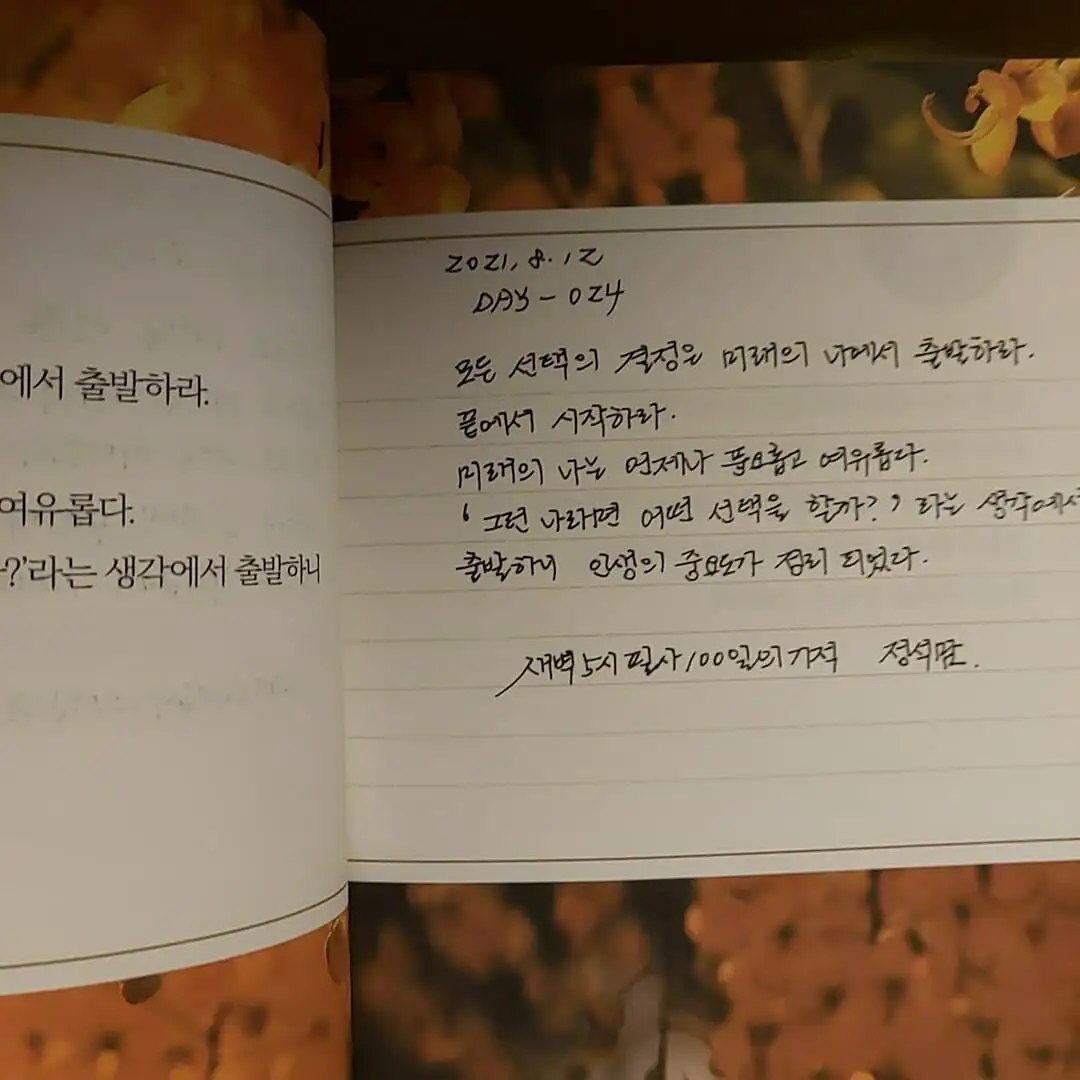 에서 출발하라.
여유롭다.
?'라는 생각에서 출발하니
2021. 8. 12
DAY - 024
모든 선택의 결정은 미래의 나에서 출발하라.
끝에서 시작하라.
미래의 나는 언제나 풍요롭고 여유롭다.
'그런 나라면 어떤 선택을 할까?' 라는 생각에서
출발하니 인생의 중요도가 정리 되었다.
새벽 5시 필사 100일의 기적